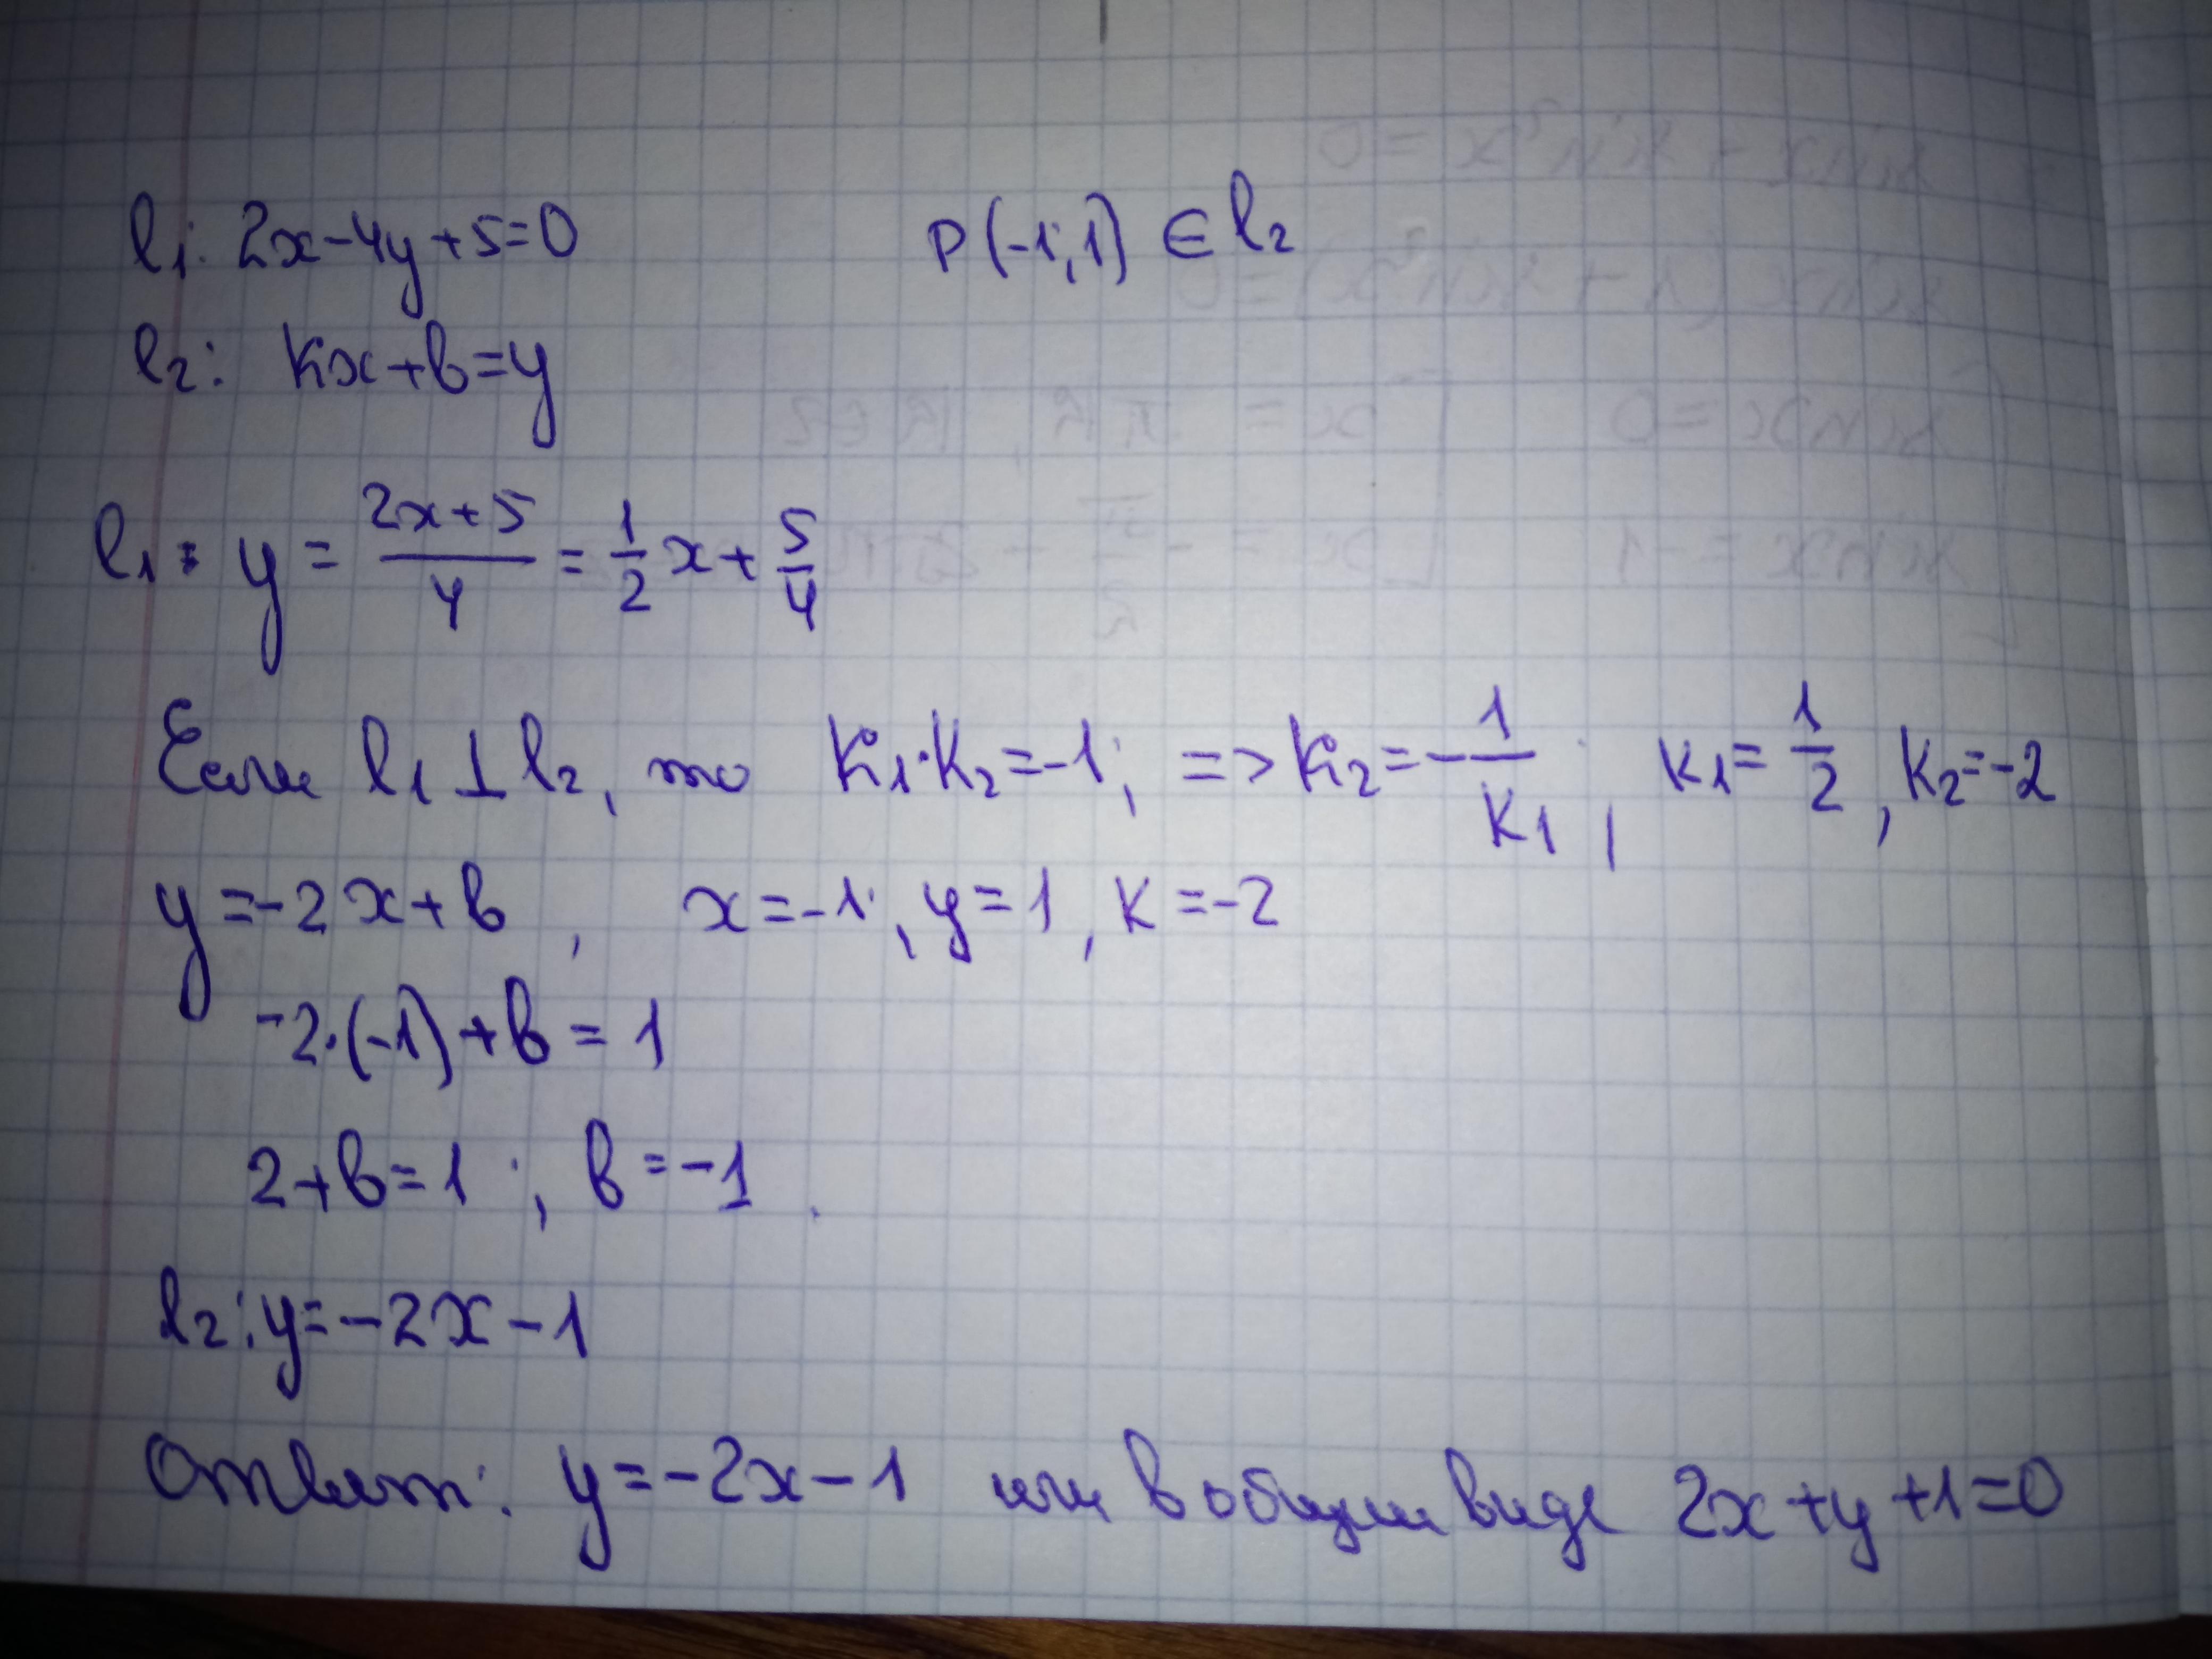 l₁: 2x-4y+5=0 P(-1;1) ∈ l₂
l₂: kx+b=y
l₁: y = (2x+5)/4 = 1/2 x + 5/4
Если l₁ ⊥ l₂, то k₁·k₂=-1; => k₂=-1/k₁; k₁=1/2, k₂=-2
y=-2x+b, x=-1, y=1, k=-2
-2·(-1)+b=1
2+b=1; b=-1.
l₂: y=-2x-1
Ответ: y=-2x-1 или в общем виде 2x+y+1=0